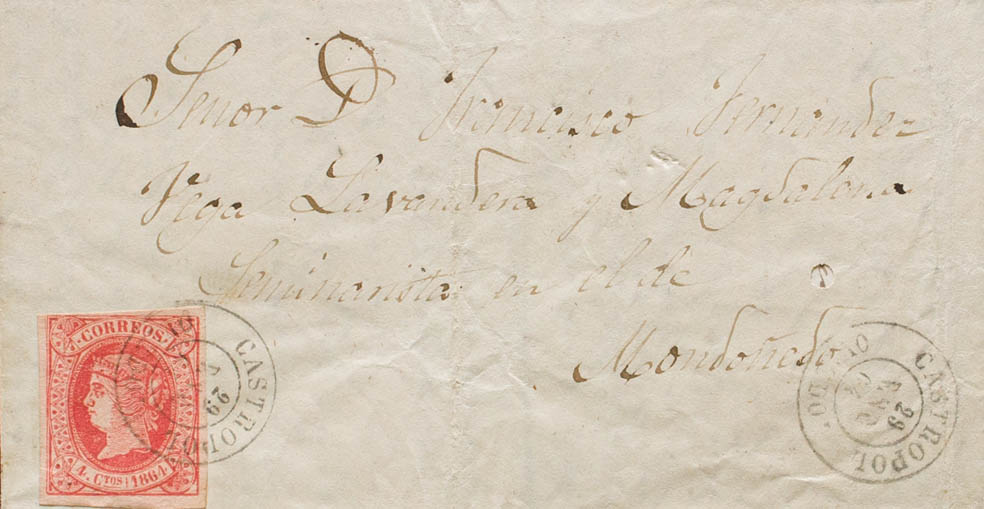 Señor D Francisco Fernandez
Vega Lavandera y Magdalena
Seminarista en el de
Mondoñedo
CORREOS
4. CTOS 1864
CASTROPOL
29
CASTROPOL
29
OVIEDO.